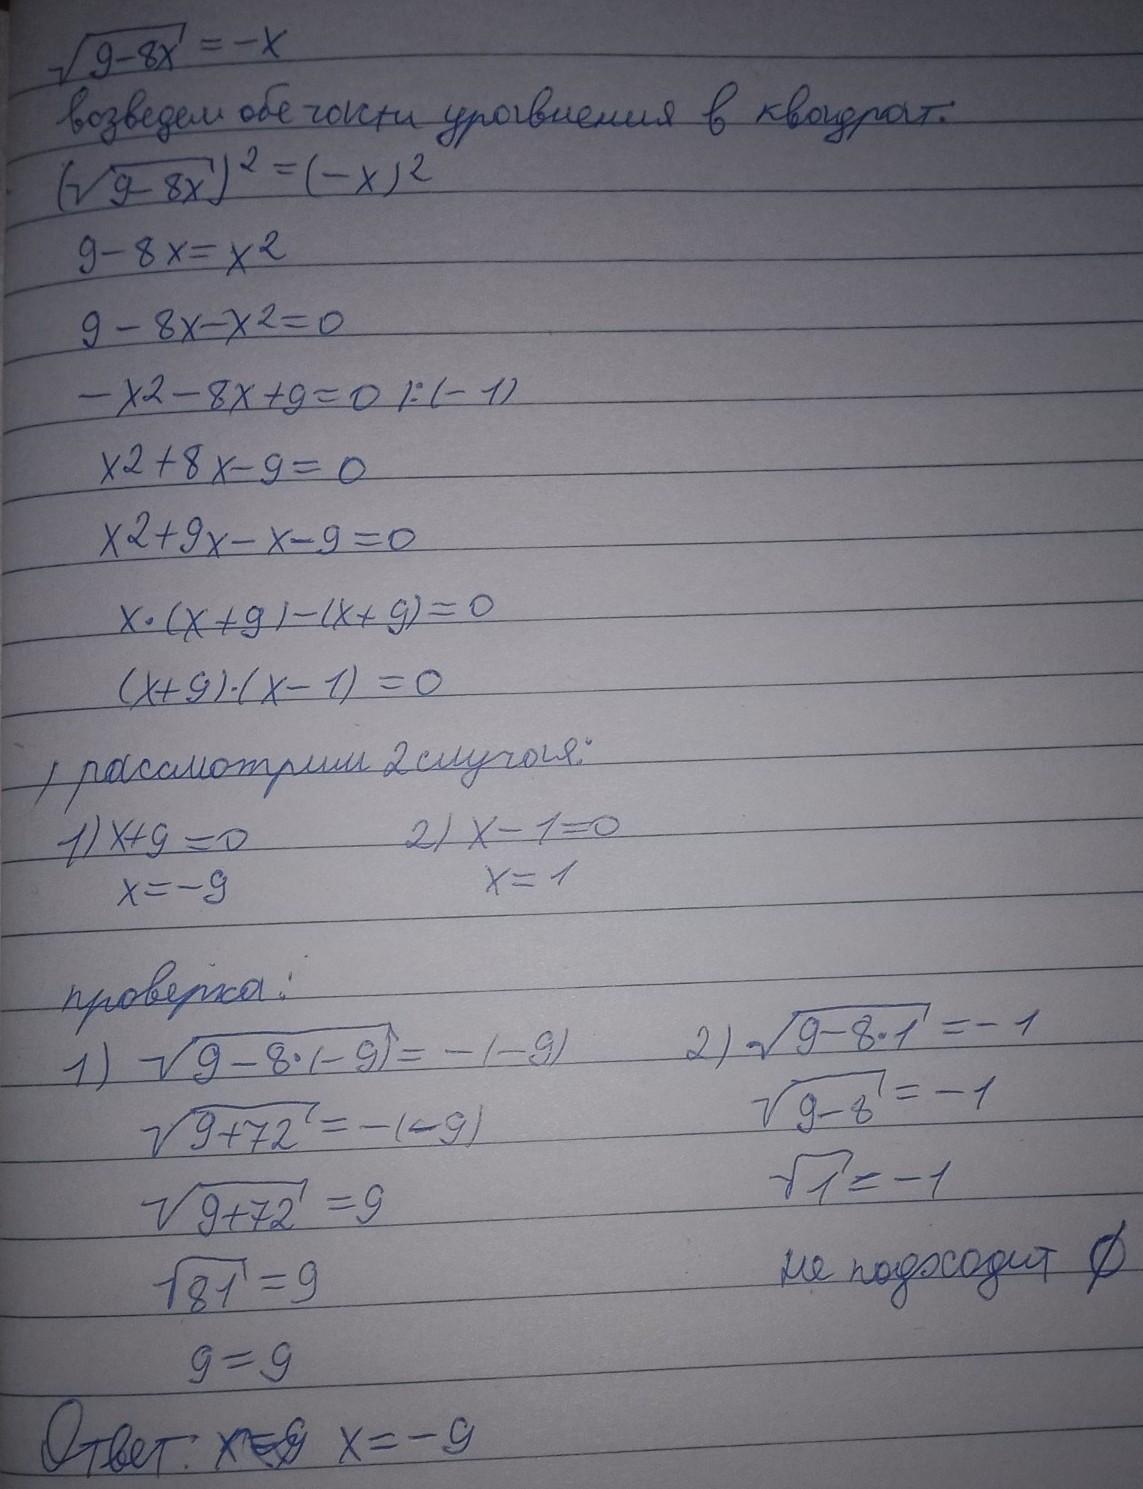 √9-8x = -x
возведем обе части уравнения в квадрат:
(√9-8x)² = (-x)²
9-8x = x²
9-8x-x2=0
-x2-8x+9=0 |:(-1)
x2+8x-9=0
x2+9x-x-9=0
x·(x+9)-(x+9)=0
(x+9)·(x-1)=0
рассмотрим 2 случая:
1) x+9=0 2) x-1=0
x=-9 x=1
проверка:
1) √9-8·(-9) = -(-9) 2) √9-8·1 = -1
√9+72 = -(-9) √9-8 = -1
√9+72 = 9 √1 = -1
√81 = 9 не подходит ∅
9=9
Ответ: x=-9